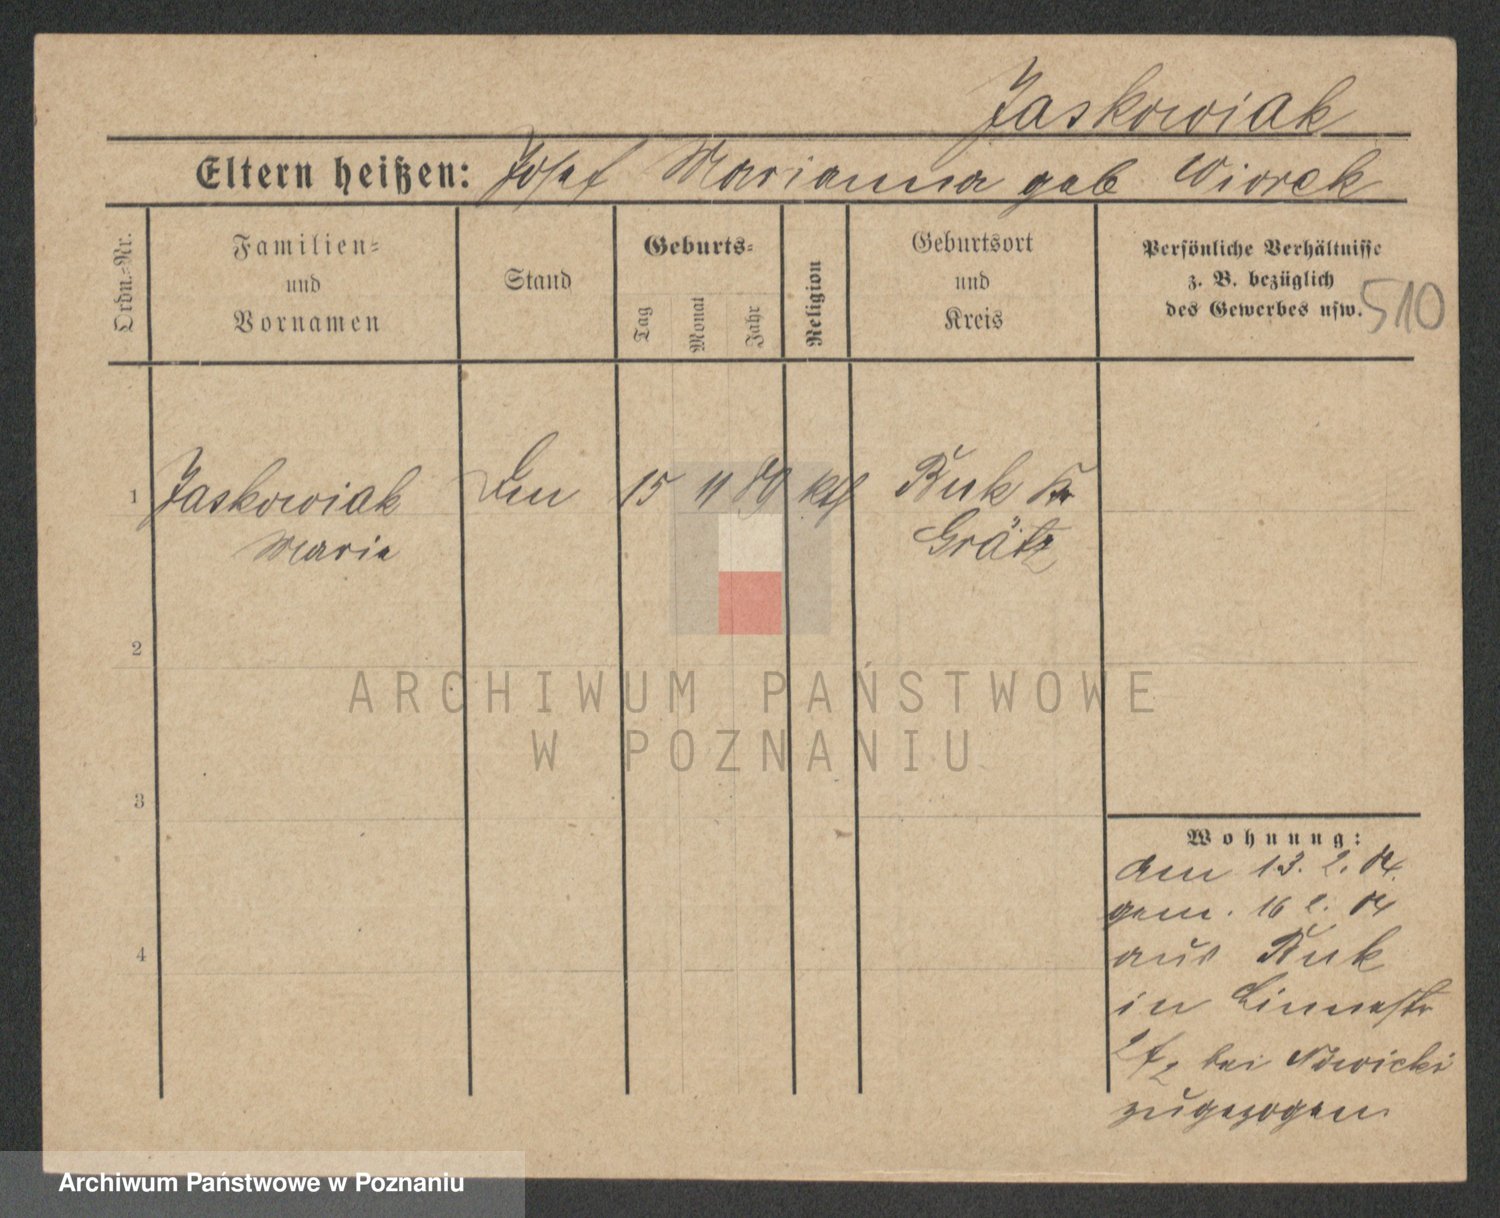 Jaskowiak
Eltern heißen: Josef Marianna geb Wiorek
Ordn.-Nr.
Familien-
und
Vornamen
Stand
Geburts-
Tag
Monat
Jahr
Religion
Geburtsort
und
Kreis
Persönliche Verhältnisse
z. B. bezüglich
des Gewerbes usw.
510
1 Jaskowiak 15 11 kth Buk Kr
Marie Grätz
2
ARCHIWUM PAŃSTWOWE
W POZNANIU
3
4
Wohnung:
Am 13. 2. 04.
gem. 16 2. 04
aus Buk
in
bei Nowicki
zugezogen
Archiwum Państwowe w Poznaniu